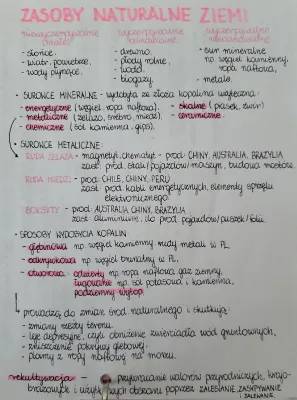 ZASOBY NATURALNE ZIEMI
niewyczerpywalne wyczerpywalne wyczerpywalne
(trwałe) odnawialne nieodnawialne
- słońce, - drewno, - sur. mineralne
- wiatr, powietrze, - płody rolne, np. węgiel kamienny,
- wody płynące. - woda, ropa naftowa,
- biogazy. - metale.
• SUROWCE MINERALNE - wydobyta ze złoża kopalina użyteczna:
- energetyczne (węgiel, ropa naftowa), - skalne (piasek, żwir)
- metaliczne (żelazo, srebro, miedź), - ceramiczne.
- chemiczne (sól kamienna, gips),
• SUROWCE METALICZNE:
RUDA ŻELAZA - magnetyt, hematyt - prod. CHINY, AUSTRALIA, BRAZYLIA
zast. prod. stali/pojazdów/maszyn, budowa mostów.
RUDA MIEDZI - prod. CHILE, CHINY, PERU
zast. prod. kabli energetycznych, elementy sprzętu
elektronicznego.
BOKSYTY - prod. AUSTRALIA, CHINY, BRAZYLIA
zast. aluminium, do prod. pojazdów/puszek/folii.
• SPOSOBY WYDOBYCIA KOPALIN
- głębinowa np. węgiel kamienny, rudy metali w PL,
- odkrywkowa np. węgiel brunatny w PL,
- otworowa - odwierty np. ropa naftowa, gaz ziemny,
ługowanie np. sól potasowa i kamienna,
podziemny wytop.
prowadzą do zmian środ. naturalnego i skutkują:
- zmiany rzeźby terenu,
- leje depresyjne, czyli obniżenie zwierciadła wód gruntowych,
- zniszczenie pokrywy glebowej,
- plamy z ropy naftowej na morzu.
rekultywacja - przywracanie walorów przyrodniczych, krajo-
brazowych i użytkowych obszaru poprzez ZALESIANIE, ZASYPYWANIE
i ZALEWANIE.